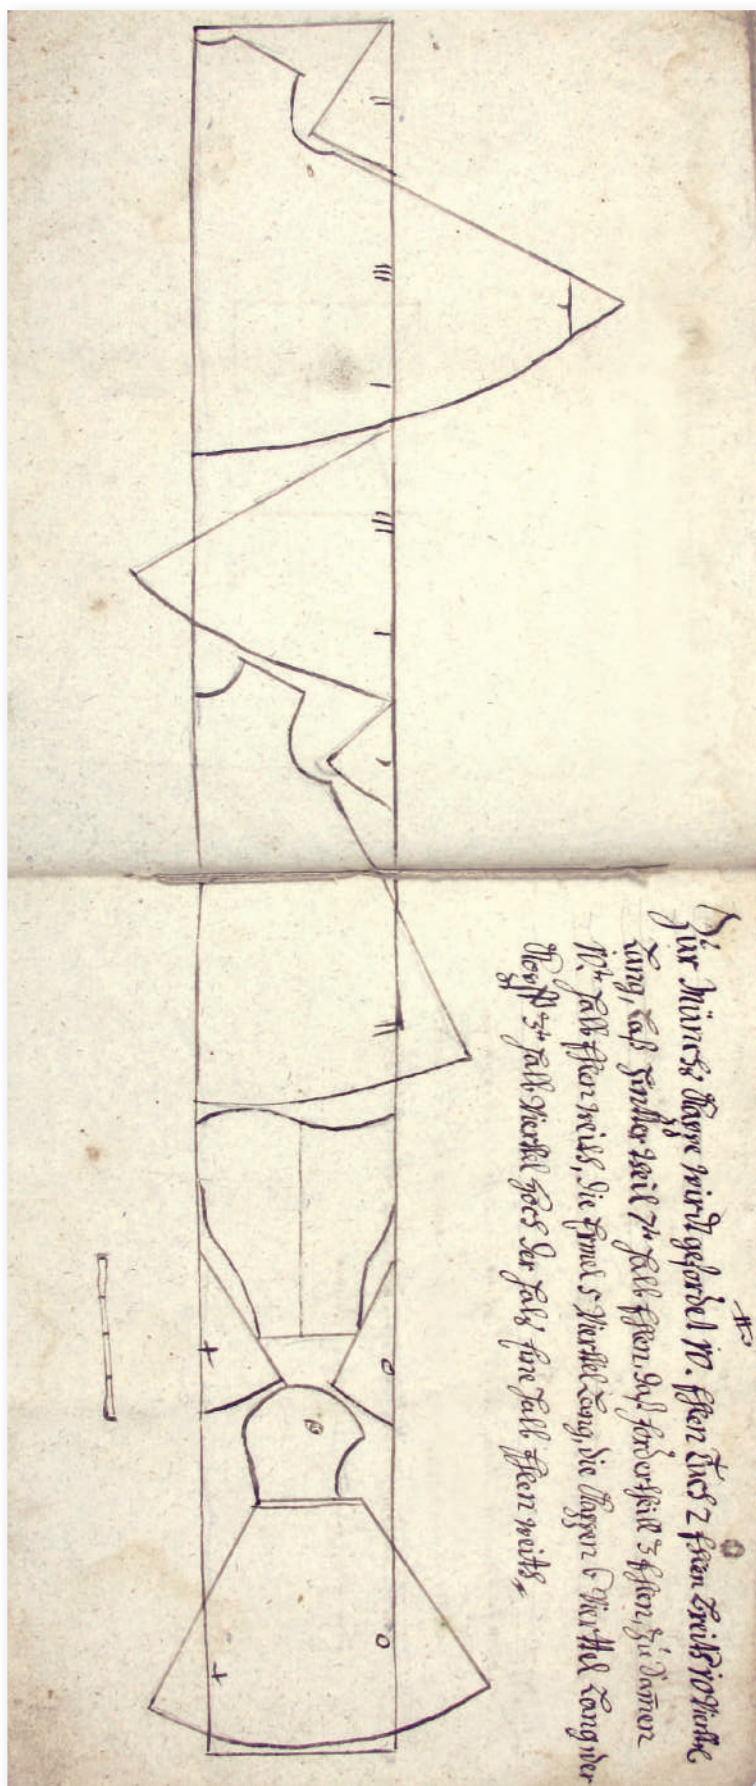 Zür Münchs Kappe wirdt gefordert 10. Ellen Tuch 2 Ellen breith 10 Viertel
Lang, daß hintter theil halb Ellen, daß forder theil 3 Ellen, zu samen
halb Ellen weith, die Ermel 5 Viertel Lang, die Kappen 6 Viertel Lang, der
Kopff halb Viertel hoch der halß Eine halb Ellen weith